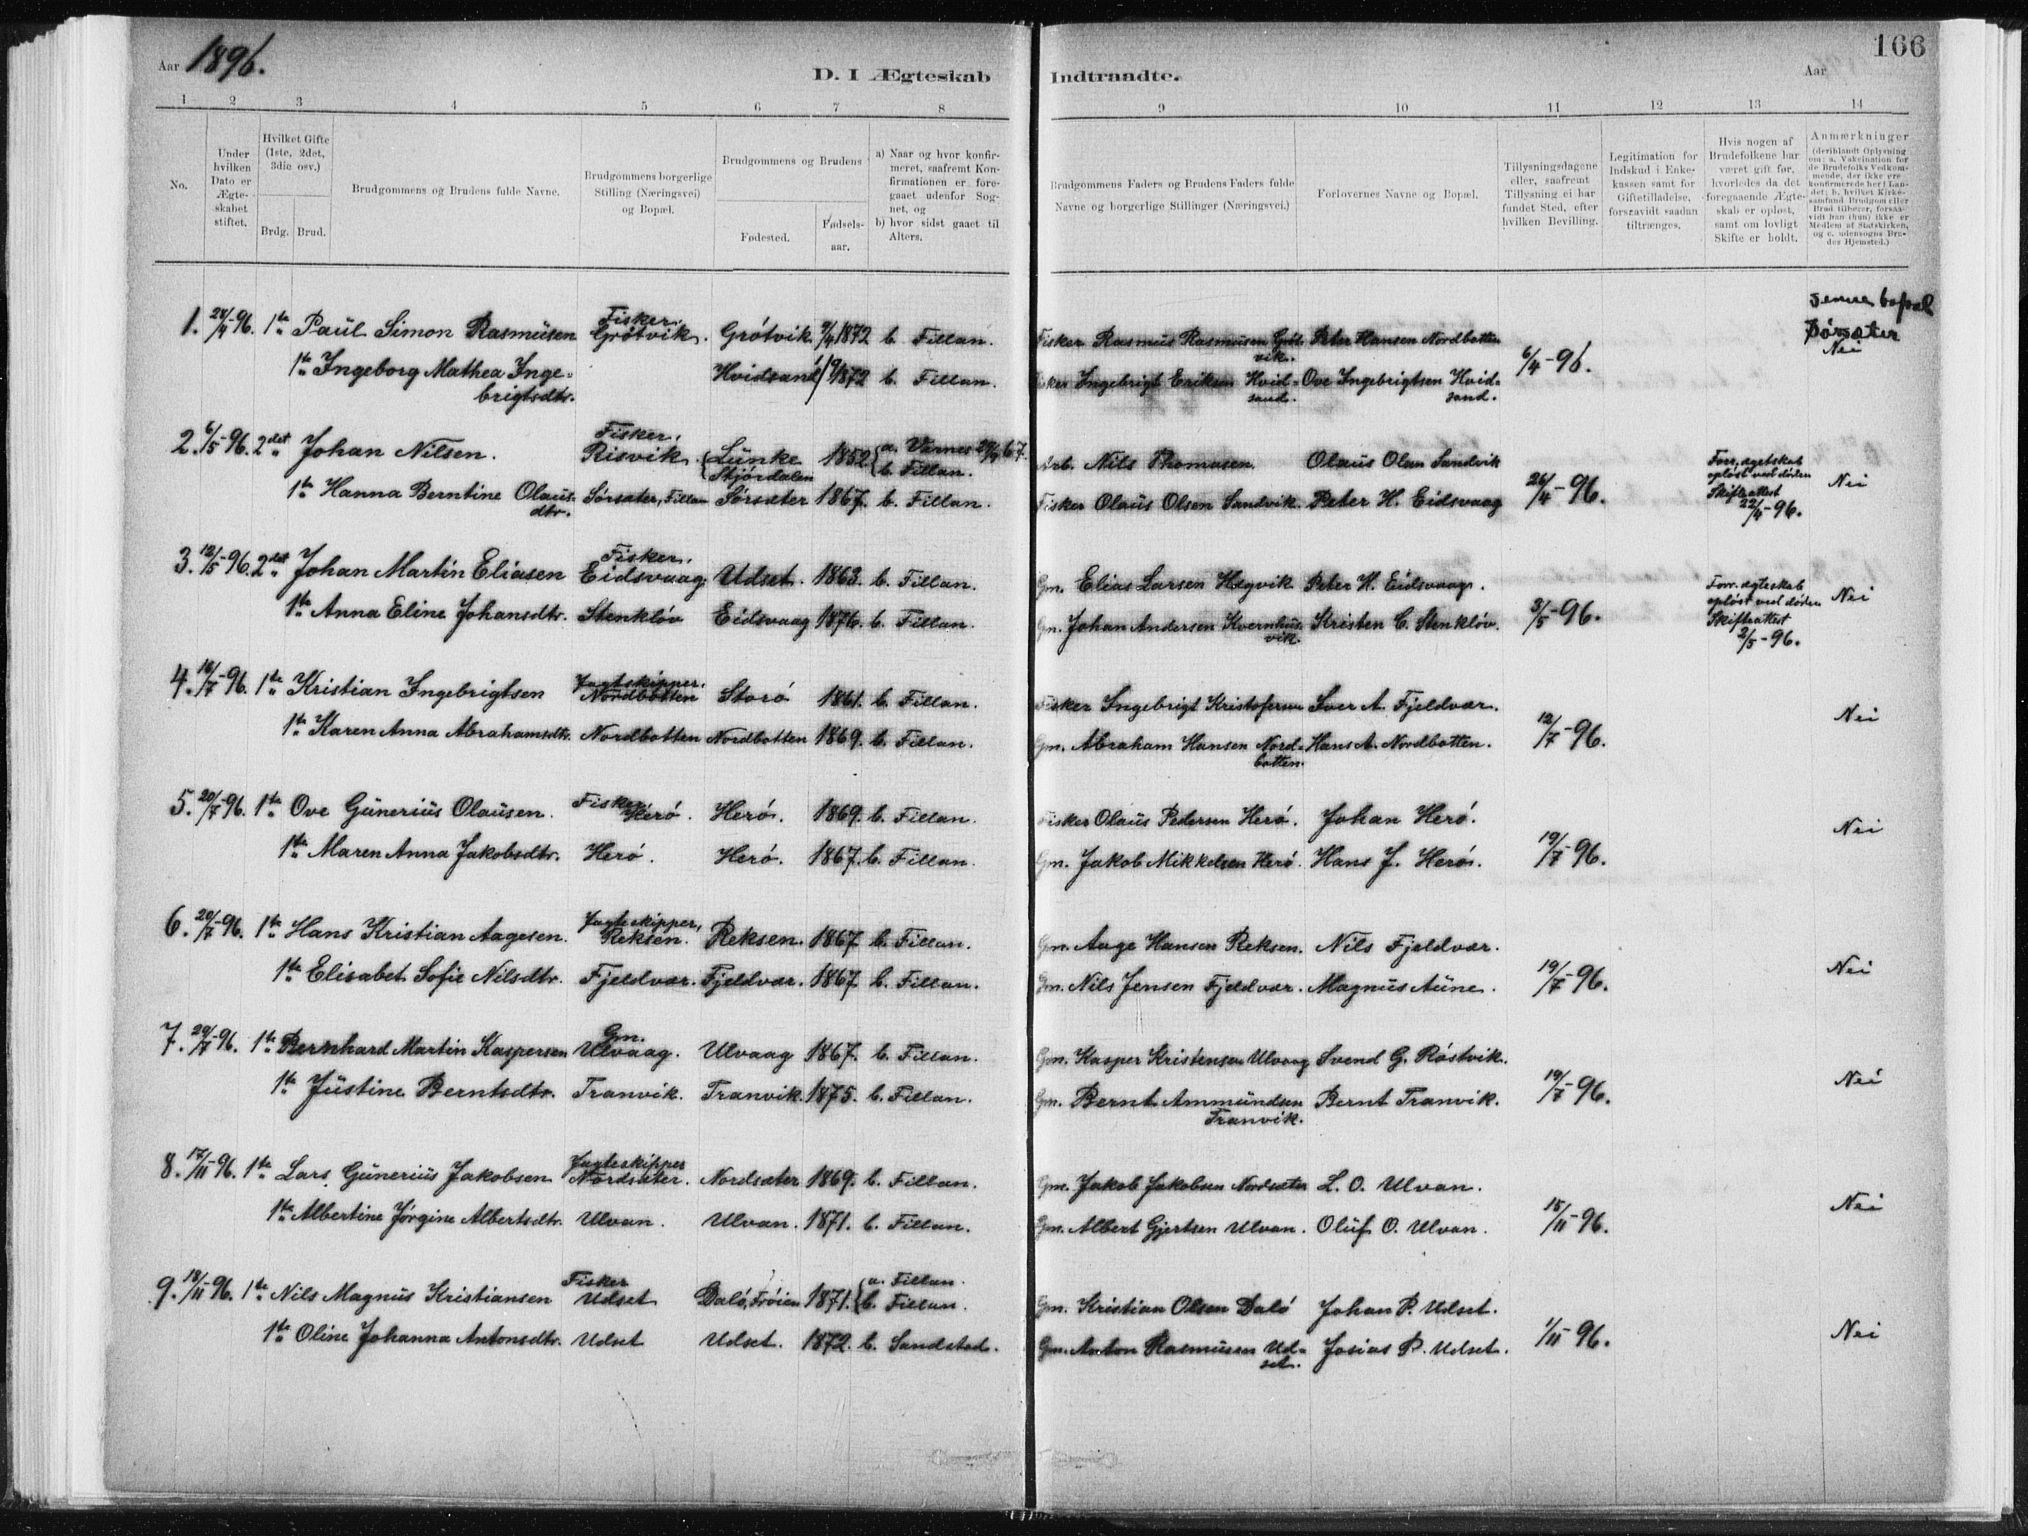 Aar 1896.
D. I Ægteskab Indtraadte.
Aar
166
1 2 3 4 5 6 7 8 9 10 11 12 13 14
No.
Under hvilken Dato er Ægteskabet stiftet.
Hvilket Gifte (1ste, 2det, 3die osv.)
Brdg. Brud.
Brudgommens og Brudens fulde Navne.
Brudgommens borgerlige Stilling (Næringsvei) og Bopæl.
Brudgommens og Brudens
Fødested.
Fødsels-aar.
a) Naar og hvor konfir-
meret, saafremt Kon-
firmationen er fore-
gaaet udenfor Sog-
net, og
b) hvor sidst gaaet til
Alters.
Brudgommens Faders og Brudens Faders fulde
Navne og borgerlige Stillinger (Næringsvei.)
Forlovernes Navne og Bopæl.
Tillysningsdagene
eller, saafremt
Tillysning ei har
fundet Sted, efter
hvilken Bevilling.
Legitimation for
Indskud i Enke-
kassen samt for
Giftetilladelse,
forsaavidt saadan
tiltrænges.
Hvis nogen af
Brudefolkene har
været gift før,
hvorledes da det
foregaaende Ægte-
skab er opløst,
samt om lovligt
Skifte er holdt.
Anmærkninger
(deriblandt Oplysning
om: a. Vakcination for
de Brudefolks Vedkom-
mende, der ikke ere
konfirmerede her i Lan-
det; b. hvilket Kirke-
samfund Brudgom eller
Brud tilhører, forsaa-
vidt han (hun) ikke er
Medlem af Statskirken,
og c. udensogns Bru-
des Hjemsted.)
1. 28/4-96. 1ste Paul Simon Rasmusen Fisker, Grótvik. Grótvik 9/4 1872 b. Fillan. Fisker Rasmus Rasmusen Grótvik. Peter Hansen Nordbotten 6/4-96. Senere bopæl Nei
1ste Ingeborg Mathea Ingebrigtsdtr. Hvidsand 1872 b. Fillan. Fisker Ingebrigt Eriksen Hvidsand. Ove Ingebrigtsen Hvidsand.
2. 6/5-96. 2det Johan Nilsen. Fisker, Risvik. Lünke Stjórdalen 1852 a. Værnes 67. b. Fillan. Arb. Nils Thomasen. Olaus Olsen Sandvik 26/4-96. Forr. ægteskab opløst ved døden Skifteattest 22/4-96. Nei
1ste Hanna Berntine Olausdtr. Sørsæter, Fillan Sørsæter 1867. b. Fillan. Fisker Olaus Olsen Sandvik. Peter H. Eidsvaag
3. 12/5-96. 2det Johan Martin Eliasen Fisker, Eidsvaag. Udset. 1863. b. Fillan. Gm. Elias Larsen Hegvik Peter H. Eidsvaag. 3/5-96. Forr. ægteskab opløst ved døden Skifteattest 2/5-96. Nei
1ste Anna Eline Johansdtr. Stenklóv Eidsvaag 1876. b. Fillan. Gm. Johan Andersen Kvernhusvik. Kristen C. Stenklóv.
4. 16/7-96. 1ste Kristian Ingebrigtsen Jagtskipper, Nordbotten Storó 1861. b. Fillan. Fisker Ingebrigt Kristofersen Iver A. Fjeldvær. 12/7-96. Nei
1ste Karen Anna Abrahamsdtr. Nordbotten Nordbotten 1869. b. Fillan. Gm. Abraham Hansen Nordbotten. Hans A. Nordbotten.
5. 20/7-96. 1ste Ove Günerius Olausen. Fisker Heró. Heró. 1869. b. Fillan. Fisker Olaus Pedersen Heró. Johan Heró. 19/7-96. Nei
1ste Maren Anna Jakobsdtr. Heró. Heró. 1867. b. Fillan. Gm. Jakob Mikkelsen Heró. Hans J. Heró.
6. 20/7-96. 1ste Hans Kristian Aagesen. Jagtskipper, Reksen. Reksen. 1867 b. Fillan. Gm. Aage Hansen Reksen. Nils Fjeldvær. 19/7-96. Nei
1ste Elisabet Sofie Nilsdtr. Fjeldvær. Fjeldvær. 1867 b. Fillan. Gm. Nils Jensen Fjeldvær. Magnus Aune.
7. 20/7-96. 1ste Bernhard Martin Kaspersen Gm. Ulvaag. Ulvaag 1867. b. Fillan. Gm. Kasper Kristensen Ulvaag Svend G. Róstvik. 19/7-96. Nei
1ste Jüstine Berntsdtr. Tranvik. Tranvik. 1875. b. Fillan. Gm. Bernt Ammundsen Tranvik. Bernt Tranvik.
8. 17/11-96. 1ste Lars Günerius Jakobsen Jagtskipper Nordsæter. Nordsæter 1869. b. Fillan. Gm. Jakob Jakobsen Nordsæter L. O. Ulvan. 15/11-96. Nei
1ste Albertine Jørgine Albertsdtr. Ulvan. Ulvan. 1871. b. Fillan. Gm. Albert Gjertsen Ulvan. Oluf O. Ulvan.
9. 18/11-96. 1ste Nils Magnüs Kristiansen Fisker Udset Daló, Fróien 1871. a. Fillan. b. Fillan. Gm. Kristian Olsen Daló Johan P. Udset. 1/11-96. Nei
1ste Oline Johanna Antonsdtr. Udset Udset. 1872. b. Sandstad. Gm. Anton Rasmusen Udset. Josias P. Udset.